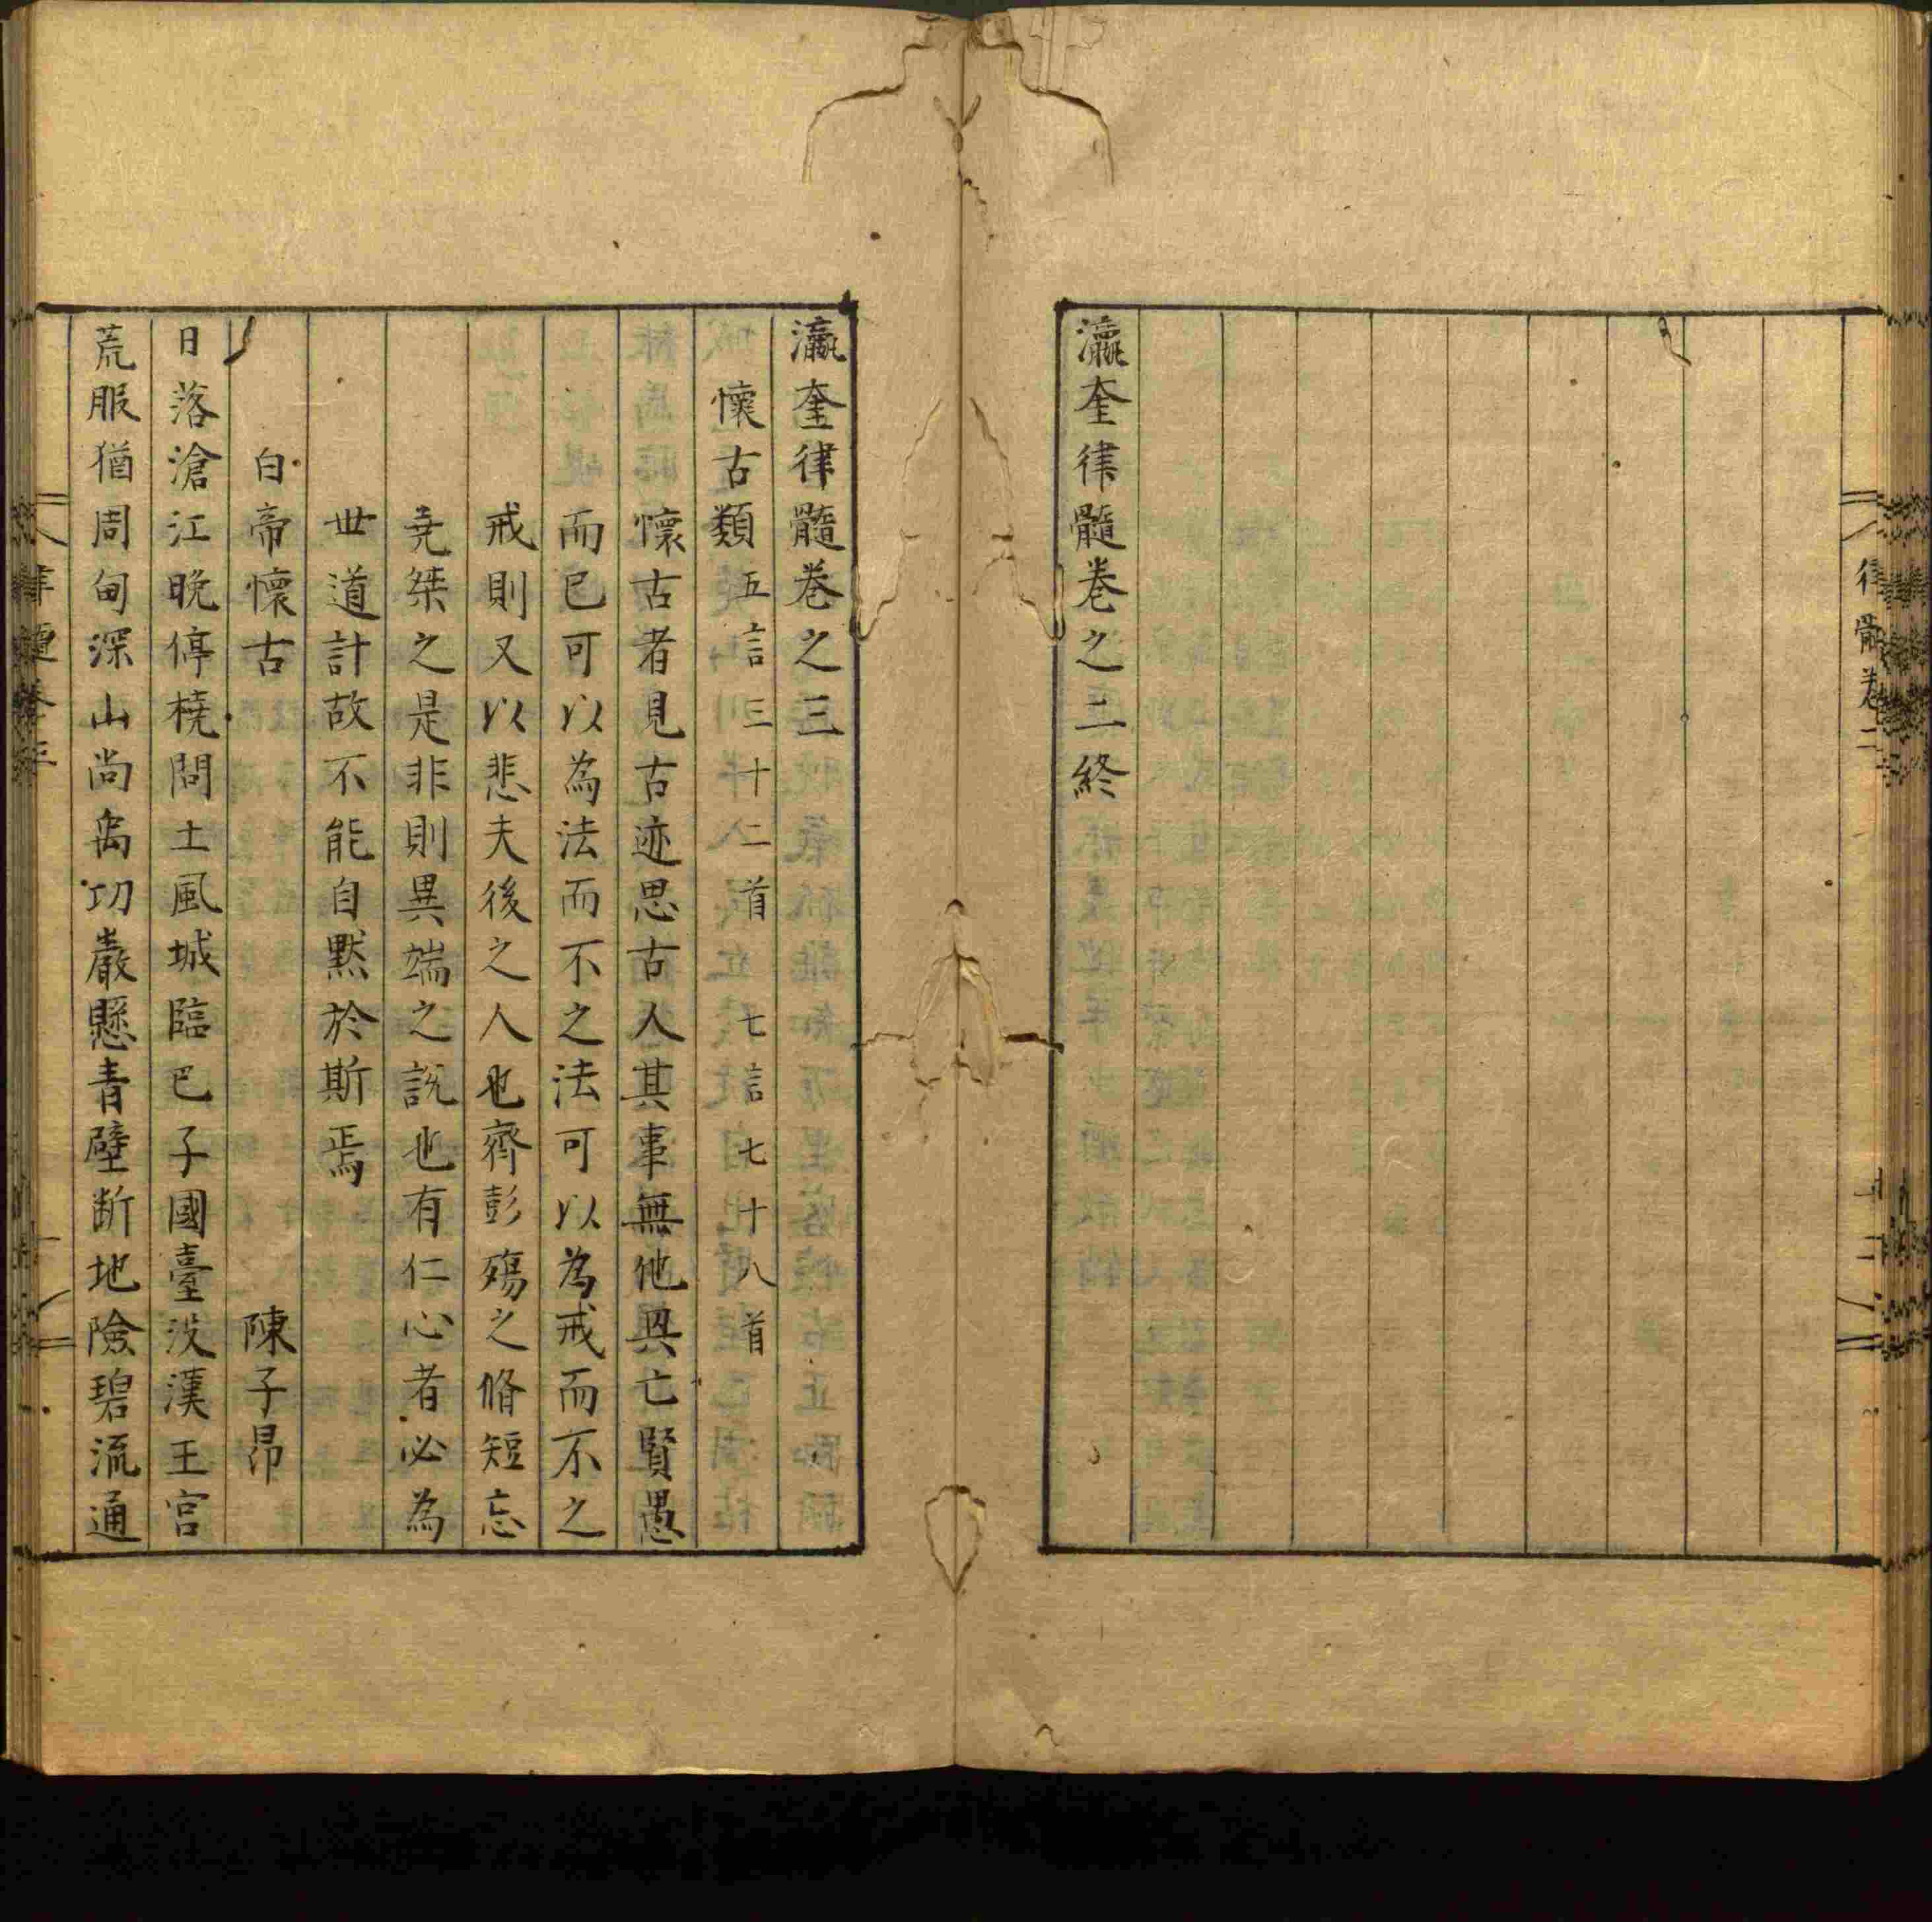 瀛奎律髓卷之二終
瀛奎律髓卷之三
懷古類五言三十二首 七言七十八首
懷古者見古迹思古人其事無他興亡賢愚
而已可以為法而不之法可以為戒而不之
戒則又以悲夫後之人也齊彭殤之脩短忘
堯桀之是非則異端之說也有仁心者必為
世道計故不能自默於斯焉
白帝懷古 陳子昂
日落滄江晚停橈問土風城臨巴子國臺沒漢王宮
荒服猶周甸深山尚禹功巖懸青壁断地險碧流通